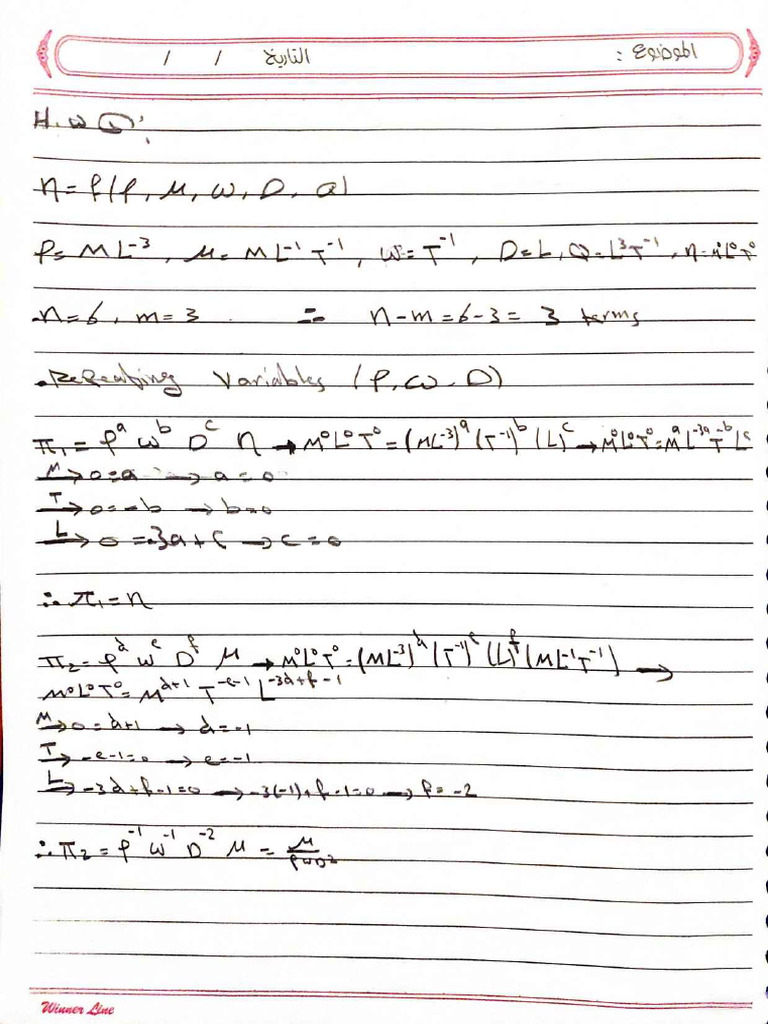 الموضوع : التاريخ / /
H.W ①:
η = f(ρ, μ, ω, D, Q)
ρ = ML⁻³, μ = ML⁻¹T⁻¹, ω = T⁻¹, D = L, Q = L³T⁻¹, η = M⁰L⁰T⁰
n = 6, m = 3 ∴ n - m = 6 - 3 = 3 terms
.Repeating Variables (ρ, ω, D)
π₁ = ρᵃ ωᵇ Dᶜ η → M⁰L⁰T⁰ = (ML⁻³)ᵃ (T⁻¹)ᵇ (L)ᶜ → M⁰L⁰T⁰ = Mᵃ L⁻³ᵃ T⁻ᵇ Lᶜ
M→ 0 = a → a = 0
T→ 0 = -b → b = 0
L→ 0 = -3a + c → c = 0
∴ π₁ = η
π₂ = ρᵈ ωᵉ Dᶠ μ → M⁰L⁰T⁰ = (ML⁻³)ᵈ (T⁻¹)ᵉ (L)ᶠ (ML⁻¹T⁻¹) →
M⁰L⁰T⁰ = Mᵈ⁺¹ T⁻ᵉ⁻¹ L⁻³ᵈ⁺ᶠ⁻¹
M→ 0 = d+1 → d = -1
T→ -e-1 = 0 → e = -1
L→ -3d+f-1 = 0 → -3(-1)+f-1 = 0 → f = -2
∴ π₂ = ρ⁻¹ ω⁻¹ D⁻² μ = μ/ρωD²
Winner Line